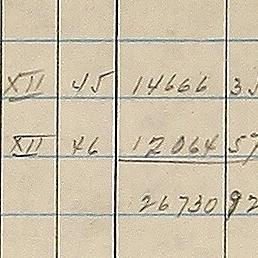 XII 45 14666 35
XII 46 12064 57
26730 92